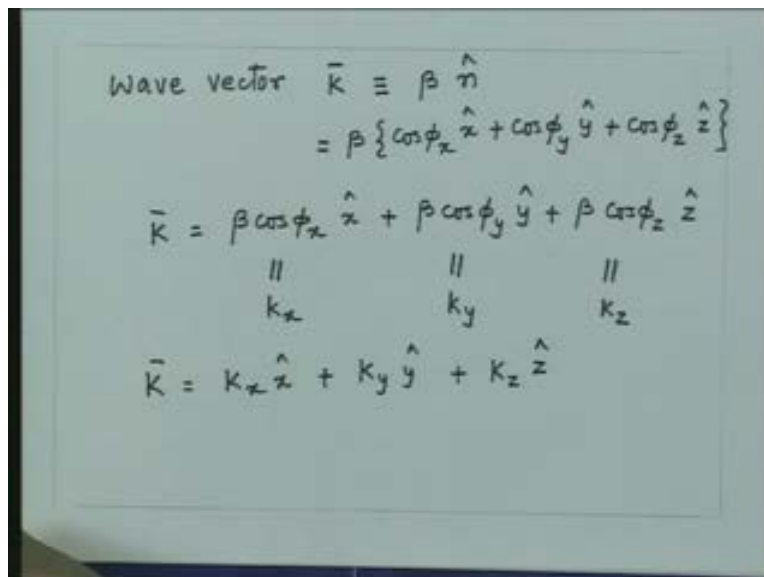 Wave vector k̄ ≡ β n̂
= β {cosϕₓ x̂ + cosϕ_y ŷ + cosϕ_z ẑ}
k̄ = β cosϕₓ x̂ + β cosϕ_y ŷ + β cosϕ_z ẑ
|| || ||
kₓ k_y k_z
k̄ = kₓ x̂ + k_y ŷ + k_z ẑ